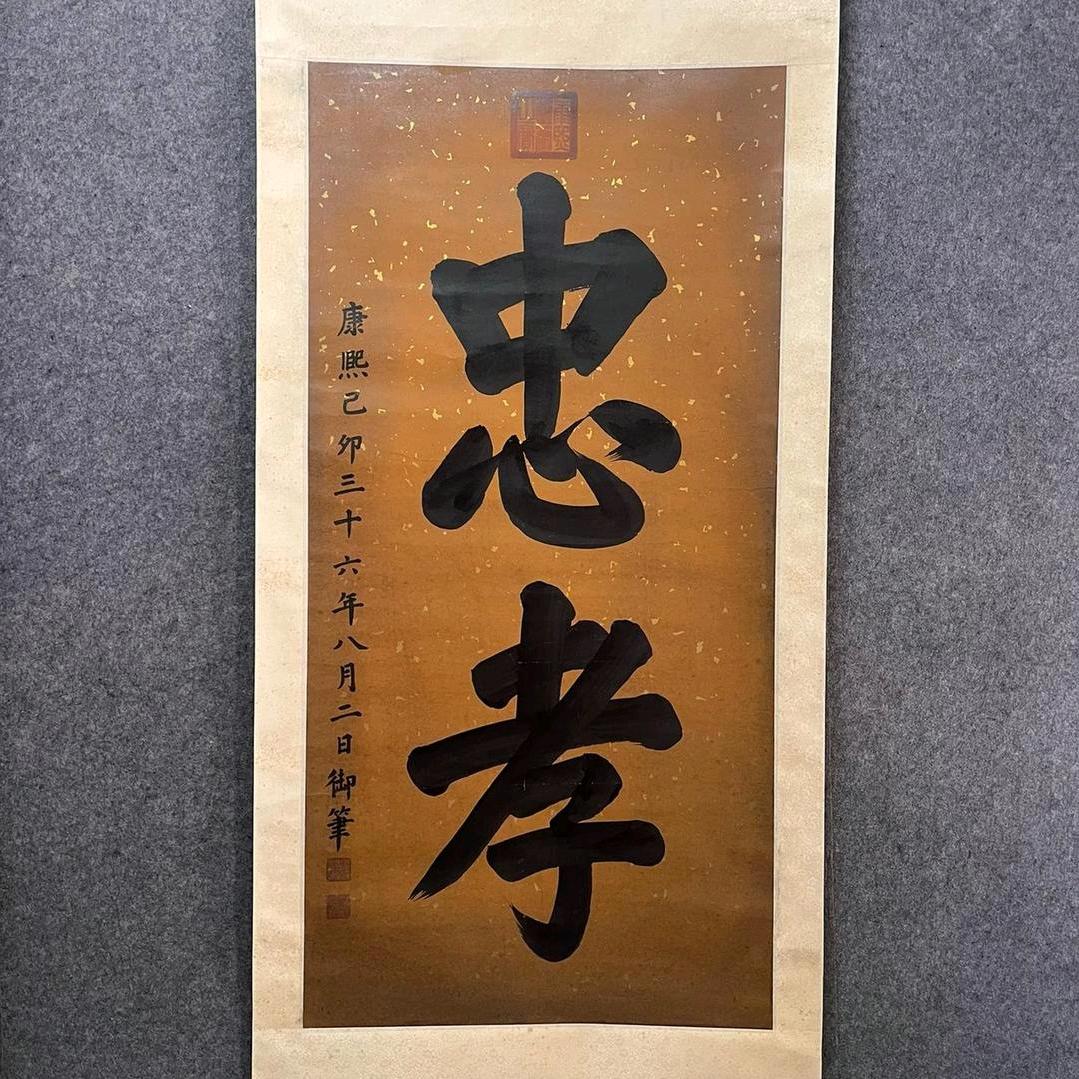 忠孝
康熙己卯三十六年八月二日御筆